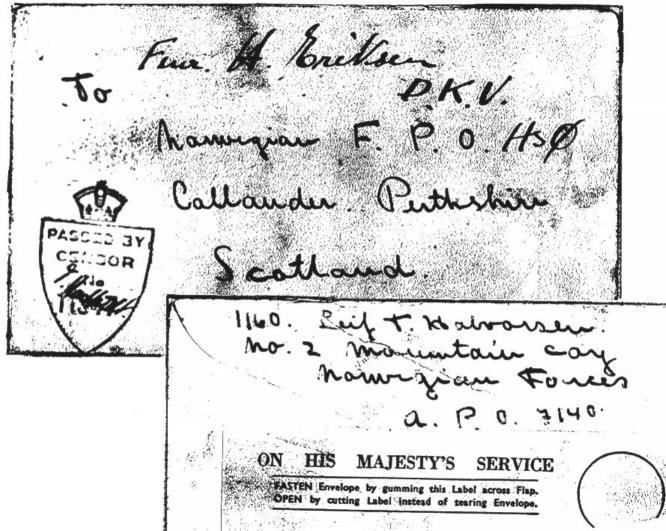 Fenr. H. Eriksen
To
D.K.V.
Norwegian F. P. O. HsØ
Callander Perthshire
Scotland.
PASSED BY
CENSOR
No
1160. Leif T. Halvorsen.
No. 2 Mountain Coy
Norwegian Forces
A. P. O. 7140.
ON HIS MAJESTY'S SERVICE
FASTEN Envelope by gumming this Label across Flap.
OPEN by cutting Label instead of tearing Envelope.